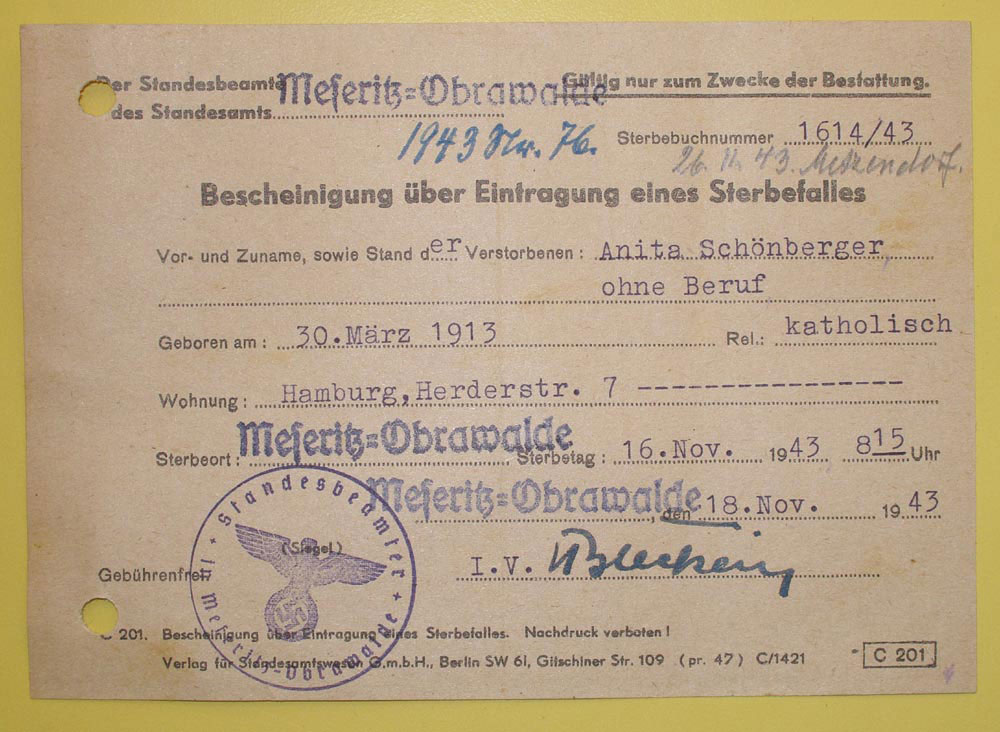 Der Standesbeamte Meseritz=Obrawalde Gültig nur zum Zwecke der Bestattung.
des Standesamts
1943 Nr. 76. Sterbebuchnummer 1614/43
26. 11. 43.
Bescheinigung über Eintragung eines Sterbefalles
Vor- und Zuname, sowie Stand der Verstorbenen: Anita Schönberger,
ohne Beruf
Geboren am: 30.März 1913 Rel.: katholisch
Wohnung: Hamburg,Herderstr. 7 ----------------
Sterbeort: Meseritz=Obrawalde Sterbetag: 16.Nov. 1943 8 15 Uhr
Meseritz=Obrawalde, den 18.Nov. 1943
(Siegel)
Gebührenfrei I.V.
Standesbeamter in Meseritz-Obrawalde
C 201. Bescheinigung über Eintragung eines Sterbefalles. Nachdruck verboten!
Verlag für Standesamtswesen G.m.b.H., Berlin SW 61, Gitschiner Str. 109 (pr. 47) C/1421 C 201